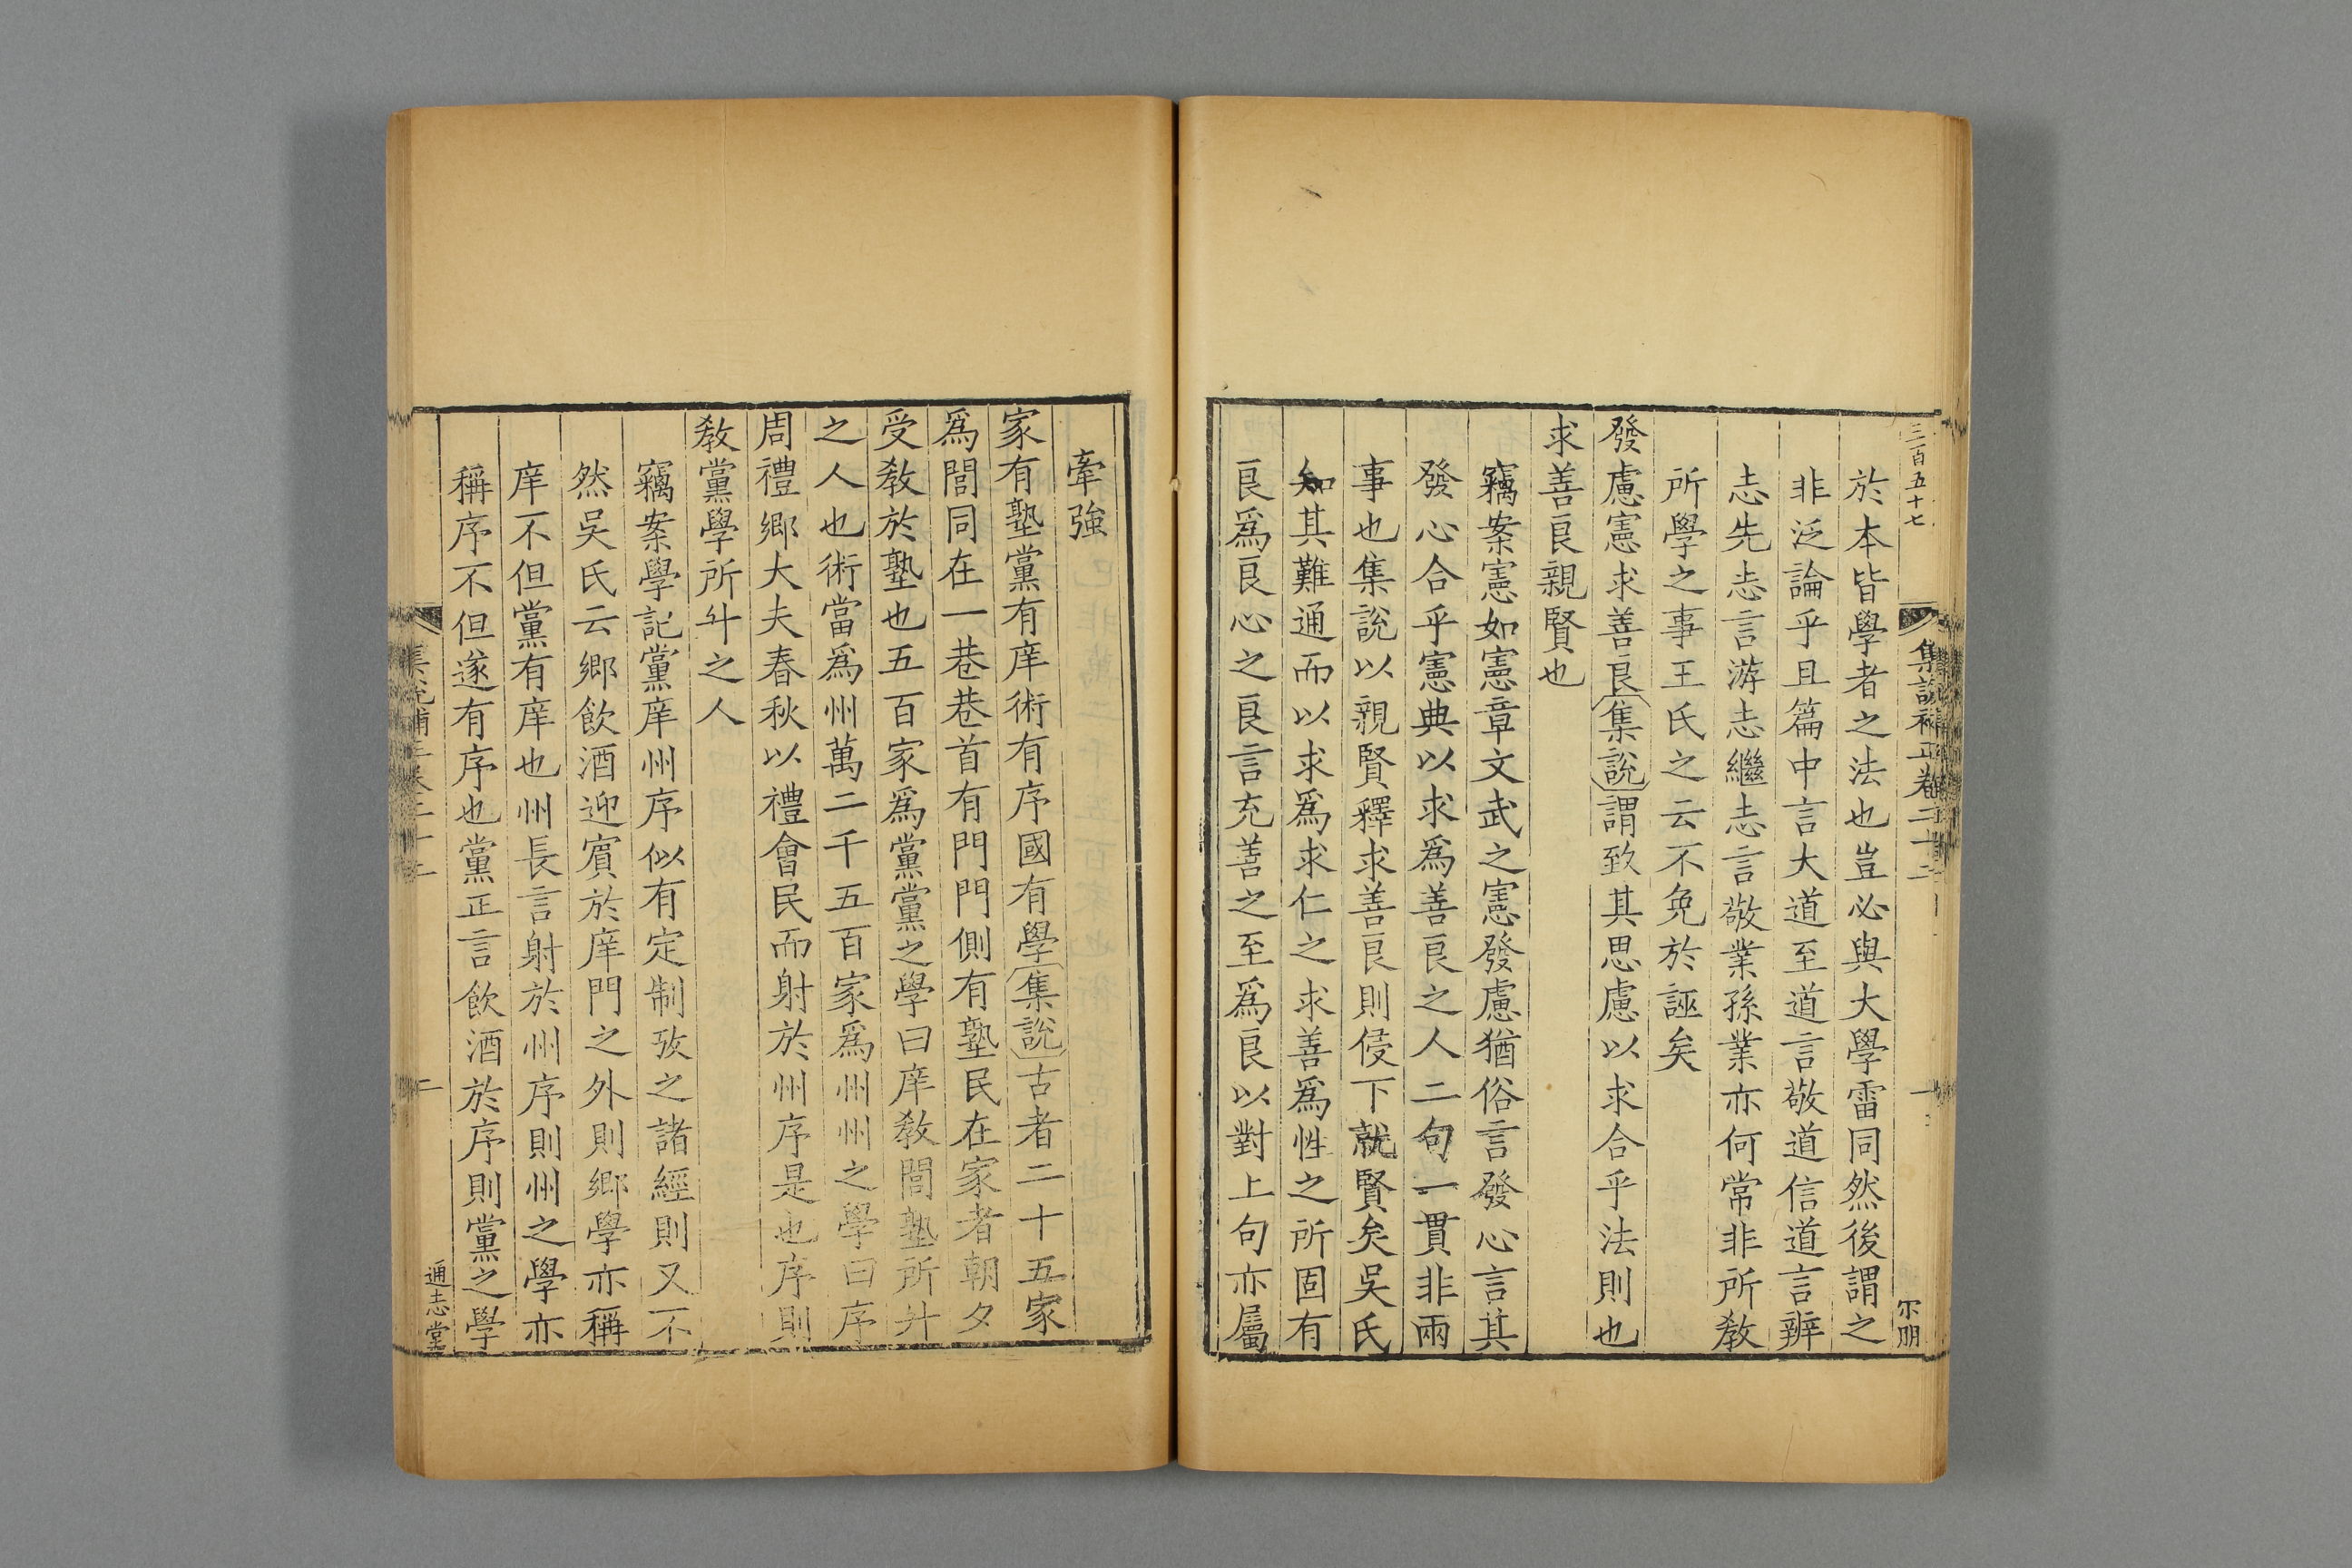 三百五十七
集說補正卷二十二
尔明
於本皆學者之法也豈必與大學雷同然後謂之
非泛論乎且篇中言大道至道言敬道信道言辨
志先志言游志繼志言敬業孫業亦何常非所敎
所學之事王氏之云不免於誣矣
發慮憲求善良集說謂致其思慮以求合乎法則也
求善良親賢也
竊案憲如憲章文武之憲發慮猶俗言發心言其
發心合乎憲典以求爲善良之人二句一貫非兩
事也集說以親賢釋求善良則侵下就賢矣吳氏
知其難通而以求爲求仁之求善爲性之所固有
良爲良心之良言充善之至爲良以對上句亦屬
牽強
家有塾黨有庠術有序國有學集說古者二十五家
爲閭同在一巷巷首有門門側有塾民在家者朝夕
受敎於塾也五百家爲黨黨之學曰庠敎閭塾所升
之人也術當爲州萬二千五百家爲州州之學曰序
周禮鄉大夫春秋以禮會民而射於州序是也序則
敎黨學所升之人
竊案學記黨庠州序似有定制攷之諸經則又不
然吳氏云鄉飮酒迎賓於庠門之外則鄉學亦稱
庠不但黨有庠也州長言射於州序則州之學亦
稱序不但遂有序也黨正言飮酒於序則黨之學
二
通志堂